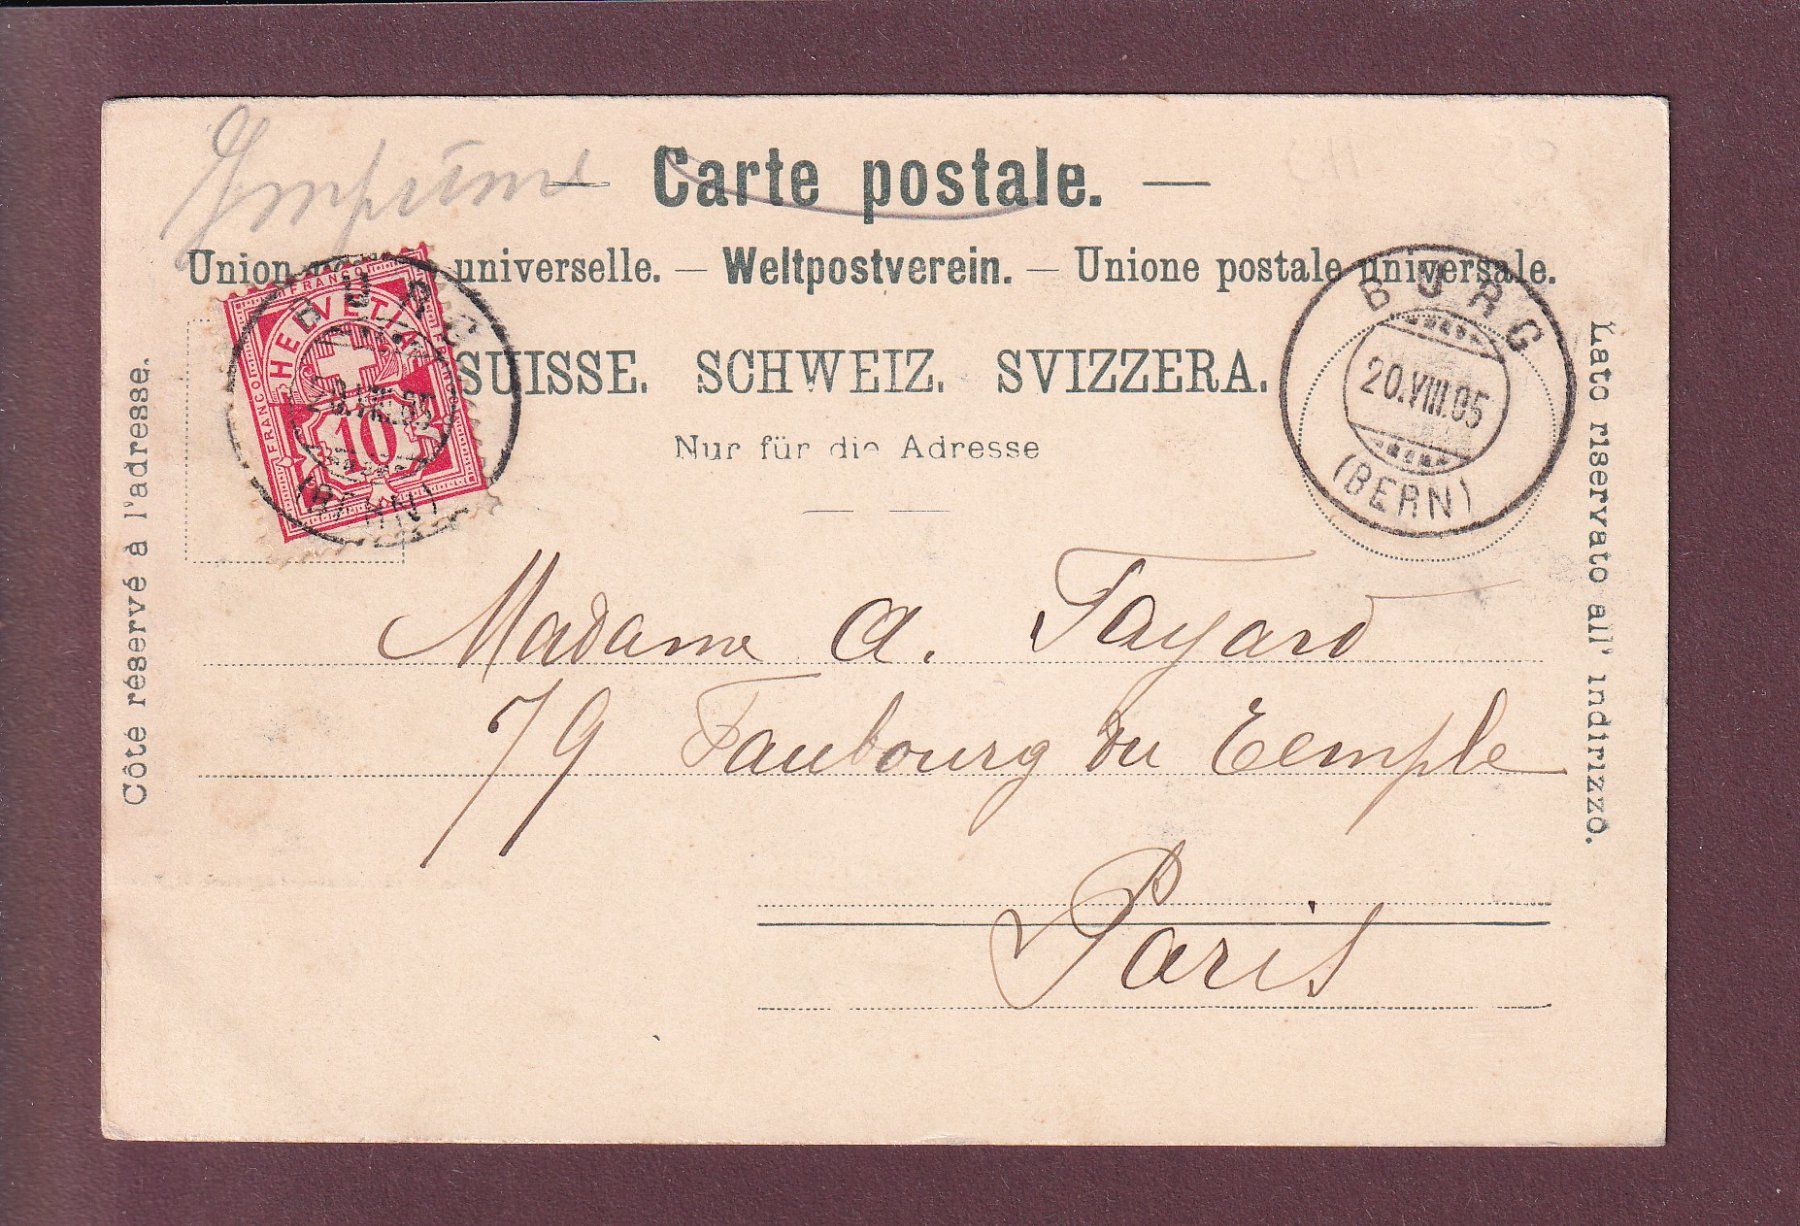 Imprimé
— Carte postale. —
Union universelle. — Weltpostverein. — Unione postale universale.
FRANCO
HELVETIA
FRANCO
10
BURG
20.VIII.05
(BERN)
SUISSE. SCHWEIZ. SVIZZERA.
Nur für die Adresse
BURG
20.VIII.05
(BERN)
Côté réservé à l'adresse.
Lato riservato all' indirizzo.
Madame A. Fayard
79 Faubourg du Temple
Paris